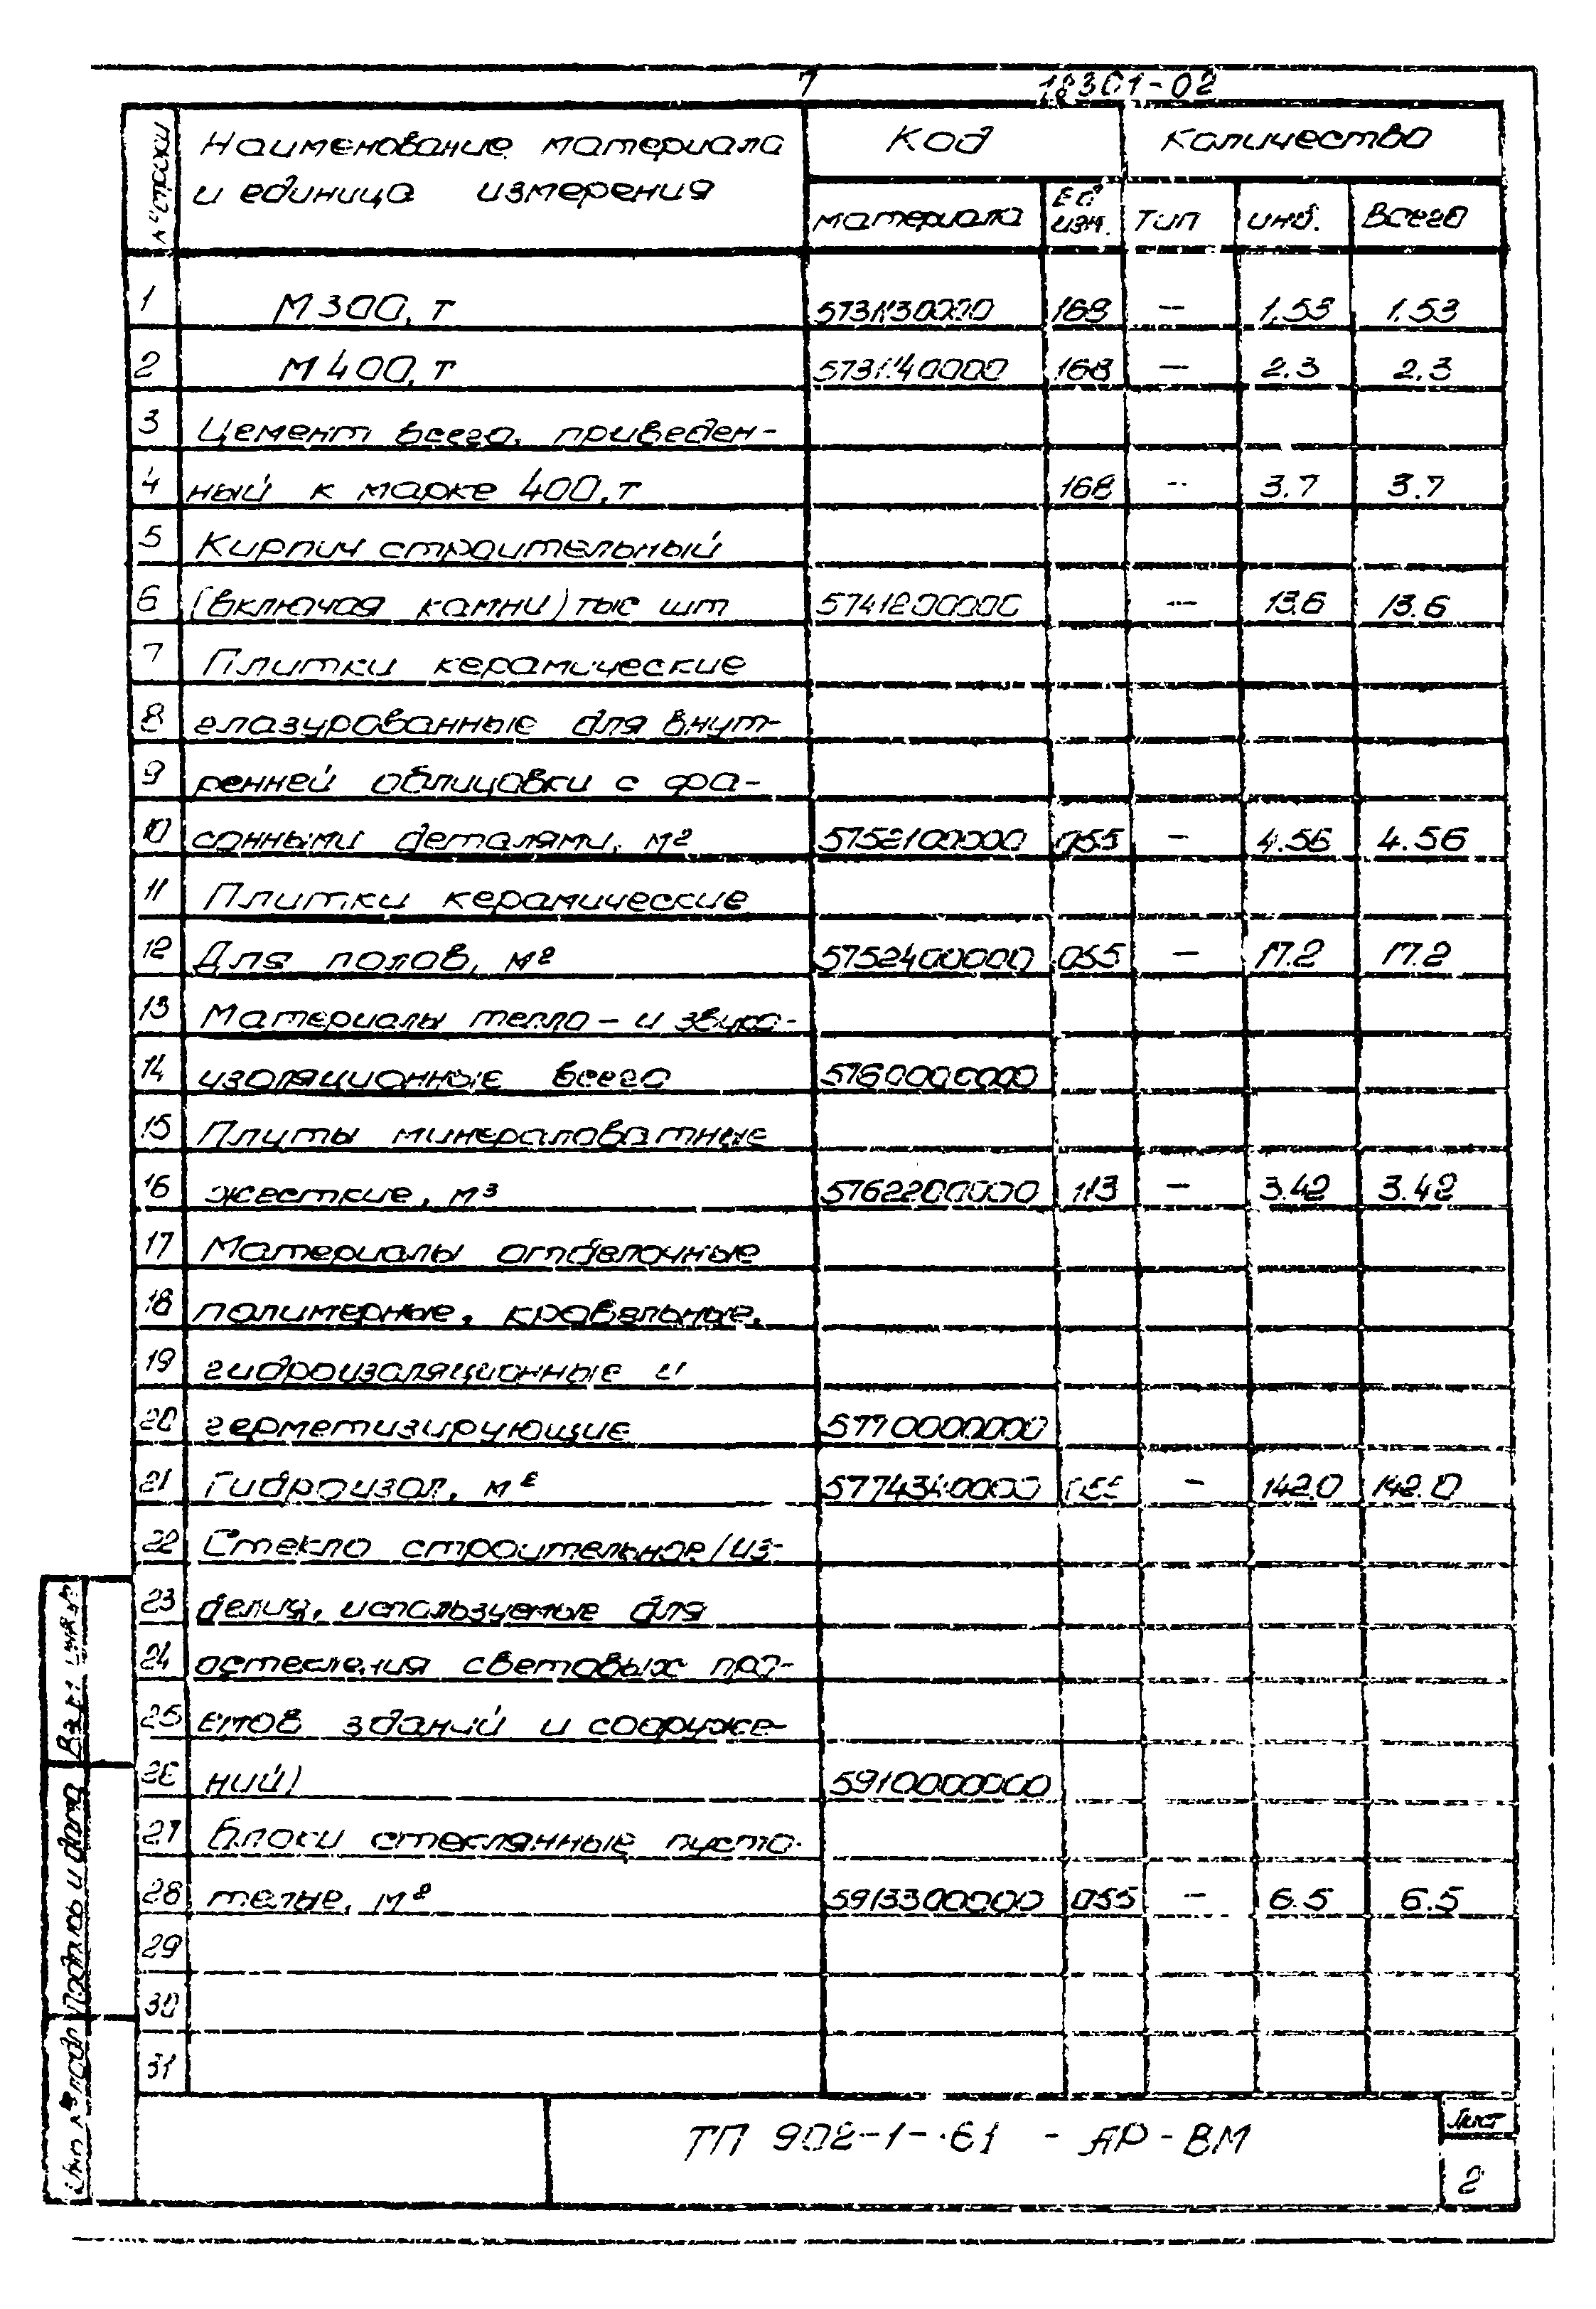 7 18301-02
№ строки Наименование материала Код Количество
и единица измерения
материала Ед. изм. Тип инд. Всего
1 М300, т 5731130000 168 - 1.53 1.53
2 М400, т 5731140000 168 - 2.3 2.3
3 Цемент всего, приведен-
4 ный к марке 400, т 168 - 3.7 3.7
5 Кирпич строительный
6 (включая камни) тыс шт 5741200000 - 13.6 13.6
7 Плитки керамические
8 глазурованные для внут-
9 ренней облицовки с фа-
10 сонными деталями, м2 5752100000 055 - 4.56 4.56
11 Плитки керамические
12 Для полов, м2 5752400000 055 - 17.2 17.2
13 Материалы тепло- и звуко-
14 изоляционные всего 5760000000
15 Плиты минераловатные
16 жесткие, м3 5762200000 113 - 3.42 3.42
17 Материалы отделочные
18 полимерные, кровельные,
19 гидроизоляционные и
20 герметизирующие 5770000000
21 Гидроизол, м2 5774340000 055 - 142.0 142.0
22 Стекло строительное/из-
23 делия, используемые для
24 остекления световых про-
25 емов зданий и сооруже-
26 ний) 5910000000
27 Блоки стеклянные пусто-
28 телые, м2 5913300000 055 - 6.5 6.5
29
30
31
Взам инв №
Подпись и дата
Инв № подл
ТП 902-1-61 - АР-ВМ
Лист
2